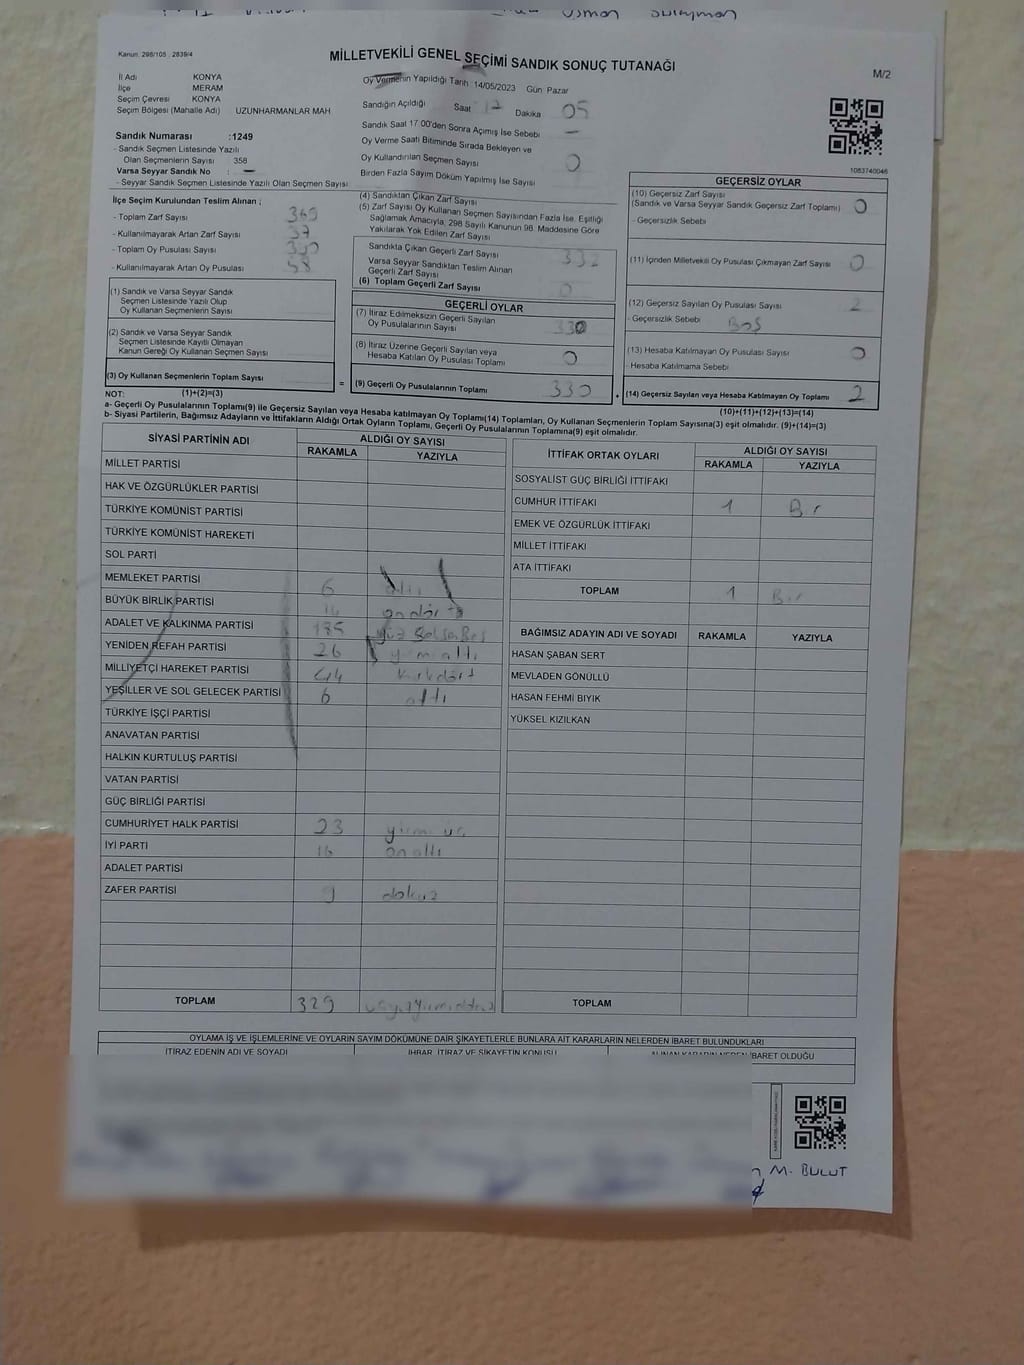 Osman Süleyman
Kanun: 298/105 , 2839/4
MİLLETVEKİLİ GENEL SEÇİMİ SANDIK SONUÇ TUTANAĞI
M/2
İl Adı KONYA
İlçe MERAM
Seçim Çevresi KONYA
Seçim Bölgesi (Mahalle Adı) UZUNHARMANLAR MAH
Oy Vermenin Yapıldığı Tarih 14/05/2023 Gün Pazar
Sandığın Açıldığı Saat 17 Dakika 05
Sandık Saat 17:00'den Sonra Açılmış İse Sebebi —
Oy Verme Saati Bitiminde Sırada Bekleyen ve
Oy Kullandırılan Seçmen Sayısı 0
Birden Fazla Sayım Döküm Yapılmış İse Sayısı
1083740046
Sandık Numarası :1249
- Sandık Seçmen Listesinde Yazılı
Olan Seçmenlerin Sayısı 358
Varsa Seyyar Sandık No : —
- Seyyar Sandık Seçmen Listesinde Yazılı Olan Seçmen Sayısı
İlçe Seçim Kurulundan Teslim Alınan ;
- Toplam Zarf Sayısı
- Kullanılmayarak Artan Zarf Sayısı 37
- Toplam Oy Pusulası Sayısı
- Kullanılmayarak Artan Oy Pusulası 58
(1) Sandık ve Varsa Seyyar Sandık
Seçmen Listesinde Yazılı Olup
Oy Kullanan Seçmenlerin Sayısı
(2) Sandık ve Varsa Seyyar Sandık
Seçmen Listesinde Kayıtlı Olmayan
Kanun Gereği Oy Kullanan Seçmen Sayısı
(3) Oy Kullanan Seçmenlerin Toplam Sayısı
(1)+(2)=(3)
(4) Sandıktan Çıkan Zarf Sayısı
(5) Zarf Sayısı Oy Kullanan Seçmen Sayısından Fazla İse, Eşitliği
Sağlamak Amacıyla, 298 Sayılı Kanunun 98. Maddesine Göre
Yakılarak Yok Edilen Zarf Sayısı
Sandıkta Çıkan Geçerli Zarf Sayısı 332
Varsa Seyyar Sandıktan Teslim Alınan
Geçerli Zarf Sayısı
(6) Toplam Geçerli Zarf Sayısı 0
GEÇERLİ OYLAR
(7) İtiraz Edilmeksizin Geçerli Sayılan
Oy Pusulalarının Sayısı 330
(8) İtiraz Üzerine Geçerli Sayılan veya
Hesaba Katılan Oy Pusulası Toplamı 0
= (9) Geçerli Oy Pusulalarının Toplamı 330
GEÇERSİZ OYLAR
(10) Geçersiz Zarf Sayısı
(Sandık ve Varsa Seyyar Sandık Geçersiz Zarf Toplamı) 0
- Geçersizlik Sebebi
(11) İçinden Milletvekili Oy Pusulası Çıkmayan Zarf Sayısı 0
(12) Geçersiz Sayılan Oy Pusulası Sayısı 2
- Geçersizlik Sebebi Boş
(13) Hesaba Katılmayan Oy Pusulası Sayısı 0
- Hesaba Katılmama Sebebi
+ (14) Geçersiz Sayılan veya Hesaba Katılmayan Oy Toplamı 2
(10)+(11)+(12)+(13)=(14)
NOT:
a- Geçerli Oy Pusulalarının Toplamı(9) ile Geçersiz Sayılan veya Hesaba katılmayan Oy Toplamı(14) Toplamları, Oy Kullanan Seçmenlerin Toplam Sayısına(3) eşit olmalıdır. (9)+(14)=(3)
b- Siyasi Partilerin, Bağımsız Adayların ve İttifakların Aldığı Ortak Oyların Toplamı, Geçerli Oy Pusulalarının Toplamına(9) eşit olmalıdır.
SİYASİ PARTİNİN ADI ALDIĞI OY SAYISI
RAKAMLA YAZIYLA
MİLLET PARTİSİ
HAK VE ÖZGÜRLÜKLER PARTİSİ
TÜRKİYE KOMÜNİST PARTİSİ
TÜRKİYE KOMÜNİST HAREKETİ
SOL PARTİ
MEMLEKET PARTİSİ 6 altı
BÜYÜK BİRLİK PARTİSİ 14 on dört
ADALET VE KALKINMA PARTİSİ 185 yüz seksen beş
YENİDEN REFAH PARTİSİ 26 yirmi altı
MİLLİYETÇİ HAREKET PARTİSİ 44 kırk dört
YEŞİLLER VE SOL GELECEK PARTİSİ 6 altı
TÜRKİYE İŞÇİ PARTİSİ
ANAVATAN PARTİSİ
HALKIN KURTULUŞ PARTİSİ
VATAN PARTİSİ
GÜÇ BİRLİĞİ PARTİSİ
CUMHURİYET HALK PARTİSİ 23 yirmi üç
İYİ PARTİ 16 on altı
ADALET PARTİSİ
ZAFER PARTİSİ 9 dokuz
TOPLAM 329
İTTİFAK ORTAK OYLARI ALDIĞI OY SAYISI
RAKAMLA YAZIYLA
SOSYALİST GÜÇ BİRLİĞİ İTTİFAKI
CUMHUR İTTİFAKI 1 Bir
EMEK VE ÖZGÜRLÜK İTTİFAKI
MİLLET İTTİFAKI
ATA İTTİFAKI
TOPLAM 1 Bir
BAĞIMSIZ ADAYIN ADI VE SOYADI RAKAMLA YAZIYLA
HASAN ŞABAN SERT
MEVLADEN GÖNÜLLÜ
HASAN FEHMİ BIYIK
YÜKSEL KIZILKAN
TOPLAM
OYLAMA İŞ VE İŞLEMLERİNE VE OYLARIN SAYIM DÖKÜMÜNE DAİR ŞİKAYETLERLE BUNLARA AİT KARARLARIN NELERDEN İBARET BULUNDUKLARI
İTİRAZ EDENİN ADI VE SOYADI İHBAR, İTİRAZ VE ŞİKAYETİN KONUSU ALINAN KARARIN NEDEN İBARET OLDUĞU
M. BULUT